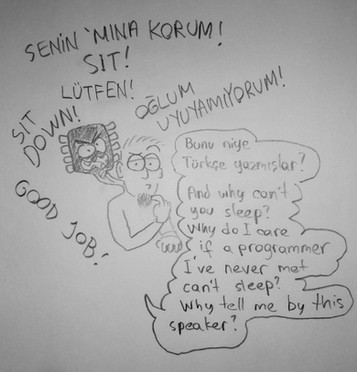 SENİN 'MINA KORUM!
SIT!
LÜTFEN!
OĞLUM
UYUYAMIYORUM!
SIT
DOWN!
GOOD JOB!
Bunu niye
Türkçe yazmışlar?
And why can't
you sleep?
Why do I care
if a programmer
I've never met
can't sleep?
Why tell me by this
speaker?